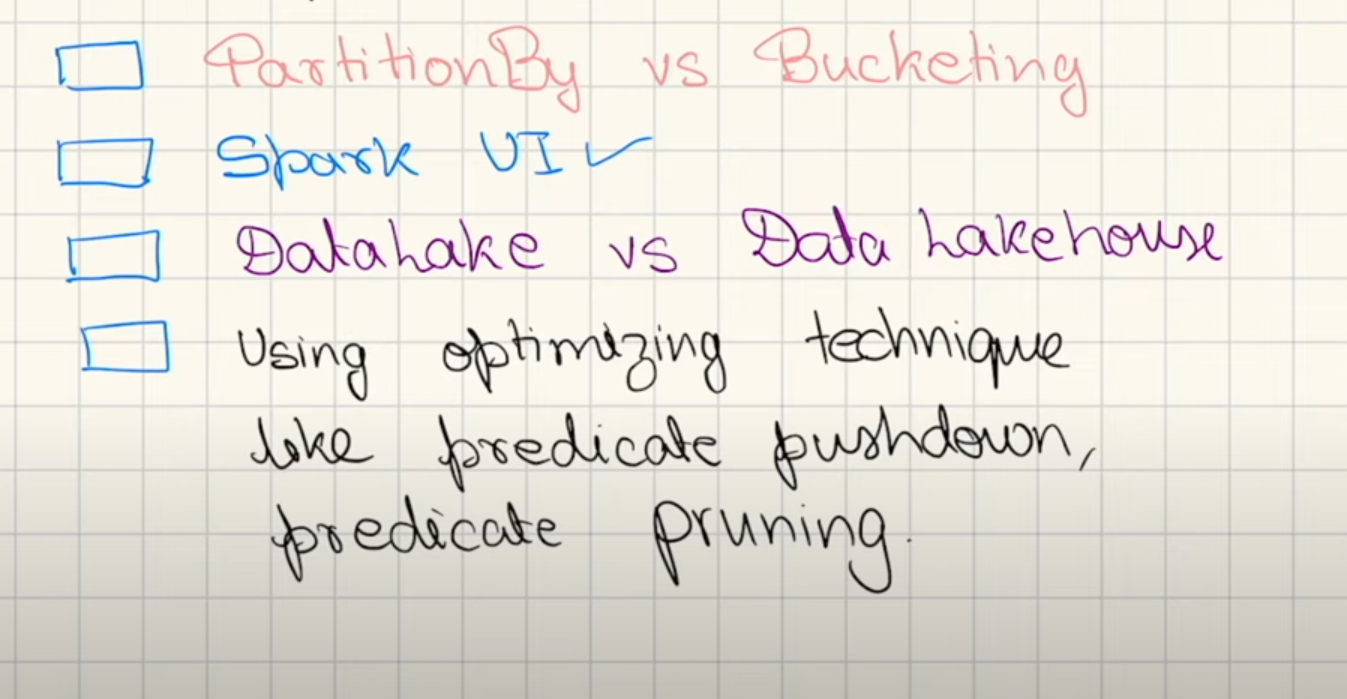 PartitionBy vs Bucketing
Spark UI ✓
DataLake vs Data Lakehouse
Using optimizing technique
like predicate pushdown,
predicate pruning.